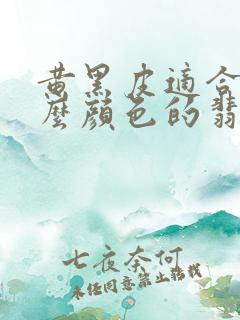 黄黑皮適合
麼顔色的翡
七夜奈何
未经同意禁止转载